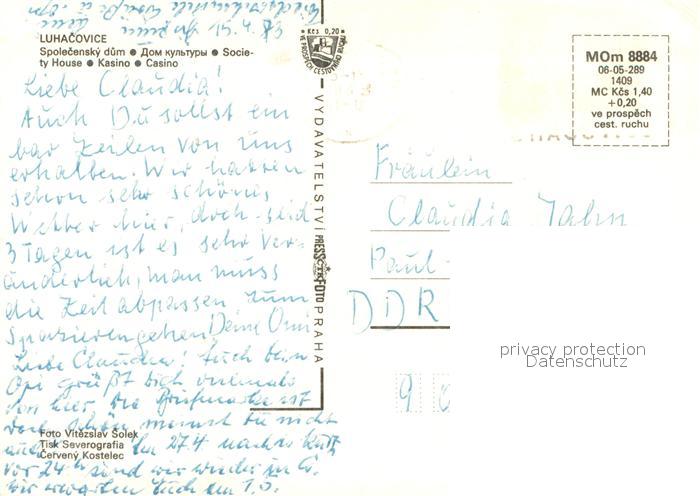 LUHAČOVICE
Společenský dům ● Дом культуры ● Socie-
ty House ● Kasino ● Casino
Kčs 0,20
VE PROSPĚCH CESTOVNÍHO RUCHU
MOm 8884
06-05-289
1409
MC Kčs 1,40
+0,20
ve prospěch
cest. ruchu
Liebe Claudia!
Auch Du sollst ein
bar Zeilen von uns
erhalten. Wir hatten
schon sehr schönes
Wetter hier, doch seid
3 Tagen ist es sehr ver-
änderlich, man muss
die Zeit abpassen zum
Spazierengehen Deine Omi
Liebe Claudia! Auch dein
Opi grüßt dich vielmals
von hier, die Briefmarke ist
doch schön meinst du nicht
auch? Am 27.4. nachts kurz
vor 24h sind wir wieder in
wir erwarten Euch am 1.5.
VYDAVATELSTVÍ PRESSFOTO PRAHA
ČTK
Fräulein
Claudia Jahn
Paul-
DDR
9
privacy protection
Datenschutz
Foto Vítězslav Šolek
Tisk Severografia
Červený Kostelec